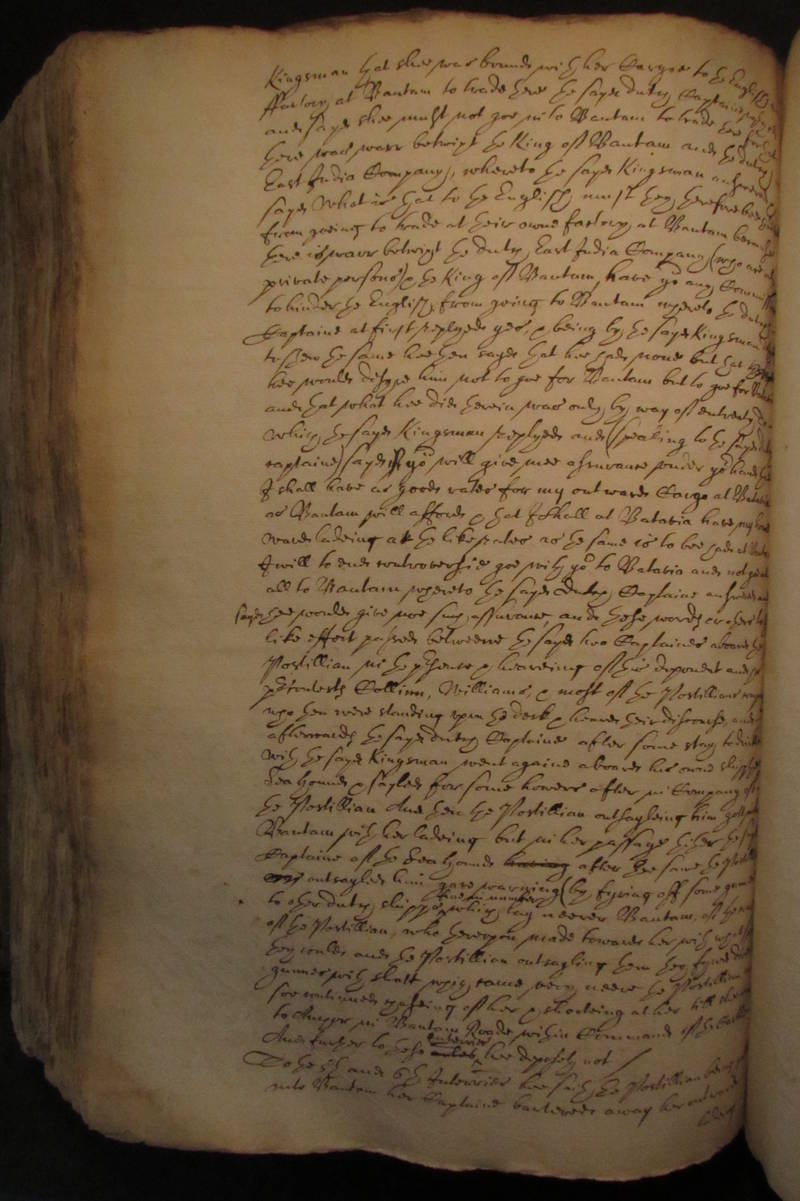 Kingsman that shee was bound with her Cargoe to the English
ffactory at Bantam to trade there the sayd dutch Captaine
and sayd shee must not goe into Bantam to trade there for that
there was warr betwixt the King of Bantam and the dutch
East India Company, whereto the sayd Kingsman answered
sayd What is that to the English must they therefore bee
from goeing to trade at their owne factory at Bantam because
there is warr betwixt the dutch East India Company (who are
private persons) & the King of Bantam, have yo any Commission
to hinder the English from goeing to Bantam whereto the dutch
Captaine at first replyed yes, & being by the sayd Kingsman
to shew the same hee then sayd that hee had none but that
hee would desyre him not to goe for Bantam but to goe for
and that what hee did herein was only by way of entreaty
Which the sayd Kingsman replyed and (speaking to the sayd
captaine) sayd If yo will give mee assurance under yor hand that
I shall have as good rates for my outward Cargo at Batavia
as Bantam will afford & that I shall at Batavia have my
ward ladeing at the like rates as the same is to bee had at
I will to end controversie goe with yo to Batavia and not goe at
all to Bantam whereto the sayd dutch Captaine answered
sayd hee would give noe such assurance, and these words or others to the
like effect passed betweene the sayd two Captaines aboard the
Postillian in the presence & heareing of this deponent and
Collinn, Williams, & most of the Postillians
who then were standing upon the deck & heard their discourse, and
afterwards the sayd dutch Captaine after some stay
with the sayd Kingsman went againe aboard his owne shipp the
Sea hound & sayled for some howers after in Company of
the Postillian And then the Postillian outsayleing him
Bantam with her ladeing but in her passage thither the
Captaine of the Sea hound after the same the
outsayled him gave warning (by fyring off some gunns
to other dutch shipps which lay neerer Bantam,
of the Postillian, who thereupon made towards her with what
they could and the Postillian outsayling them they fyred
gunnes with shott which came very neere the Postillian
soe continued chaseing of her & shooteing at her till shee
to Anchor in Bantam Roade within Command of the Castle
And further to these Interries hee deposeth not
To the 5th and 6th Interries hee saith the Postillian being
into Bantam her Captaine bartered away her outward